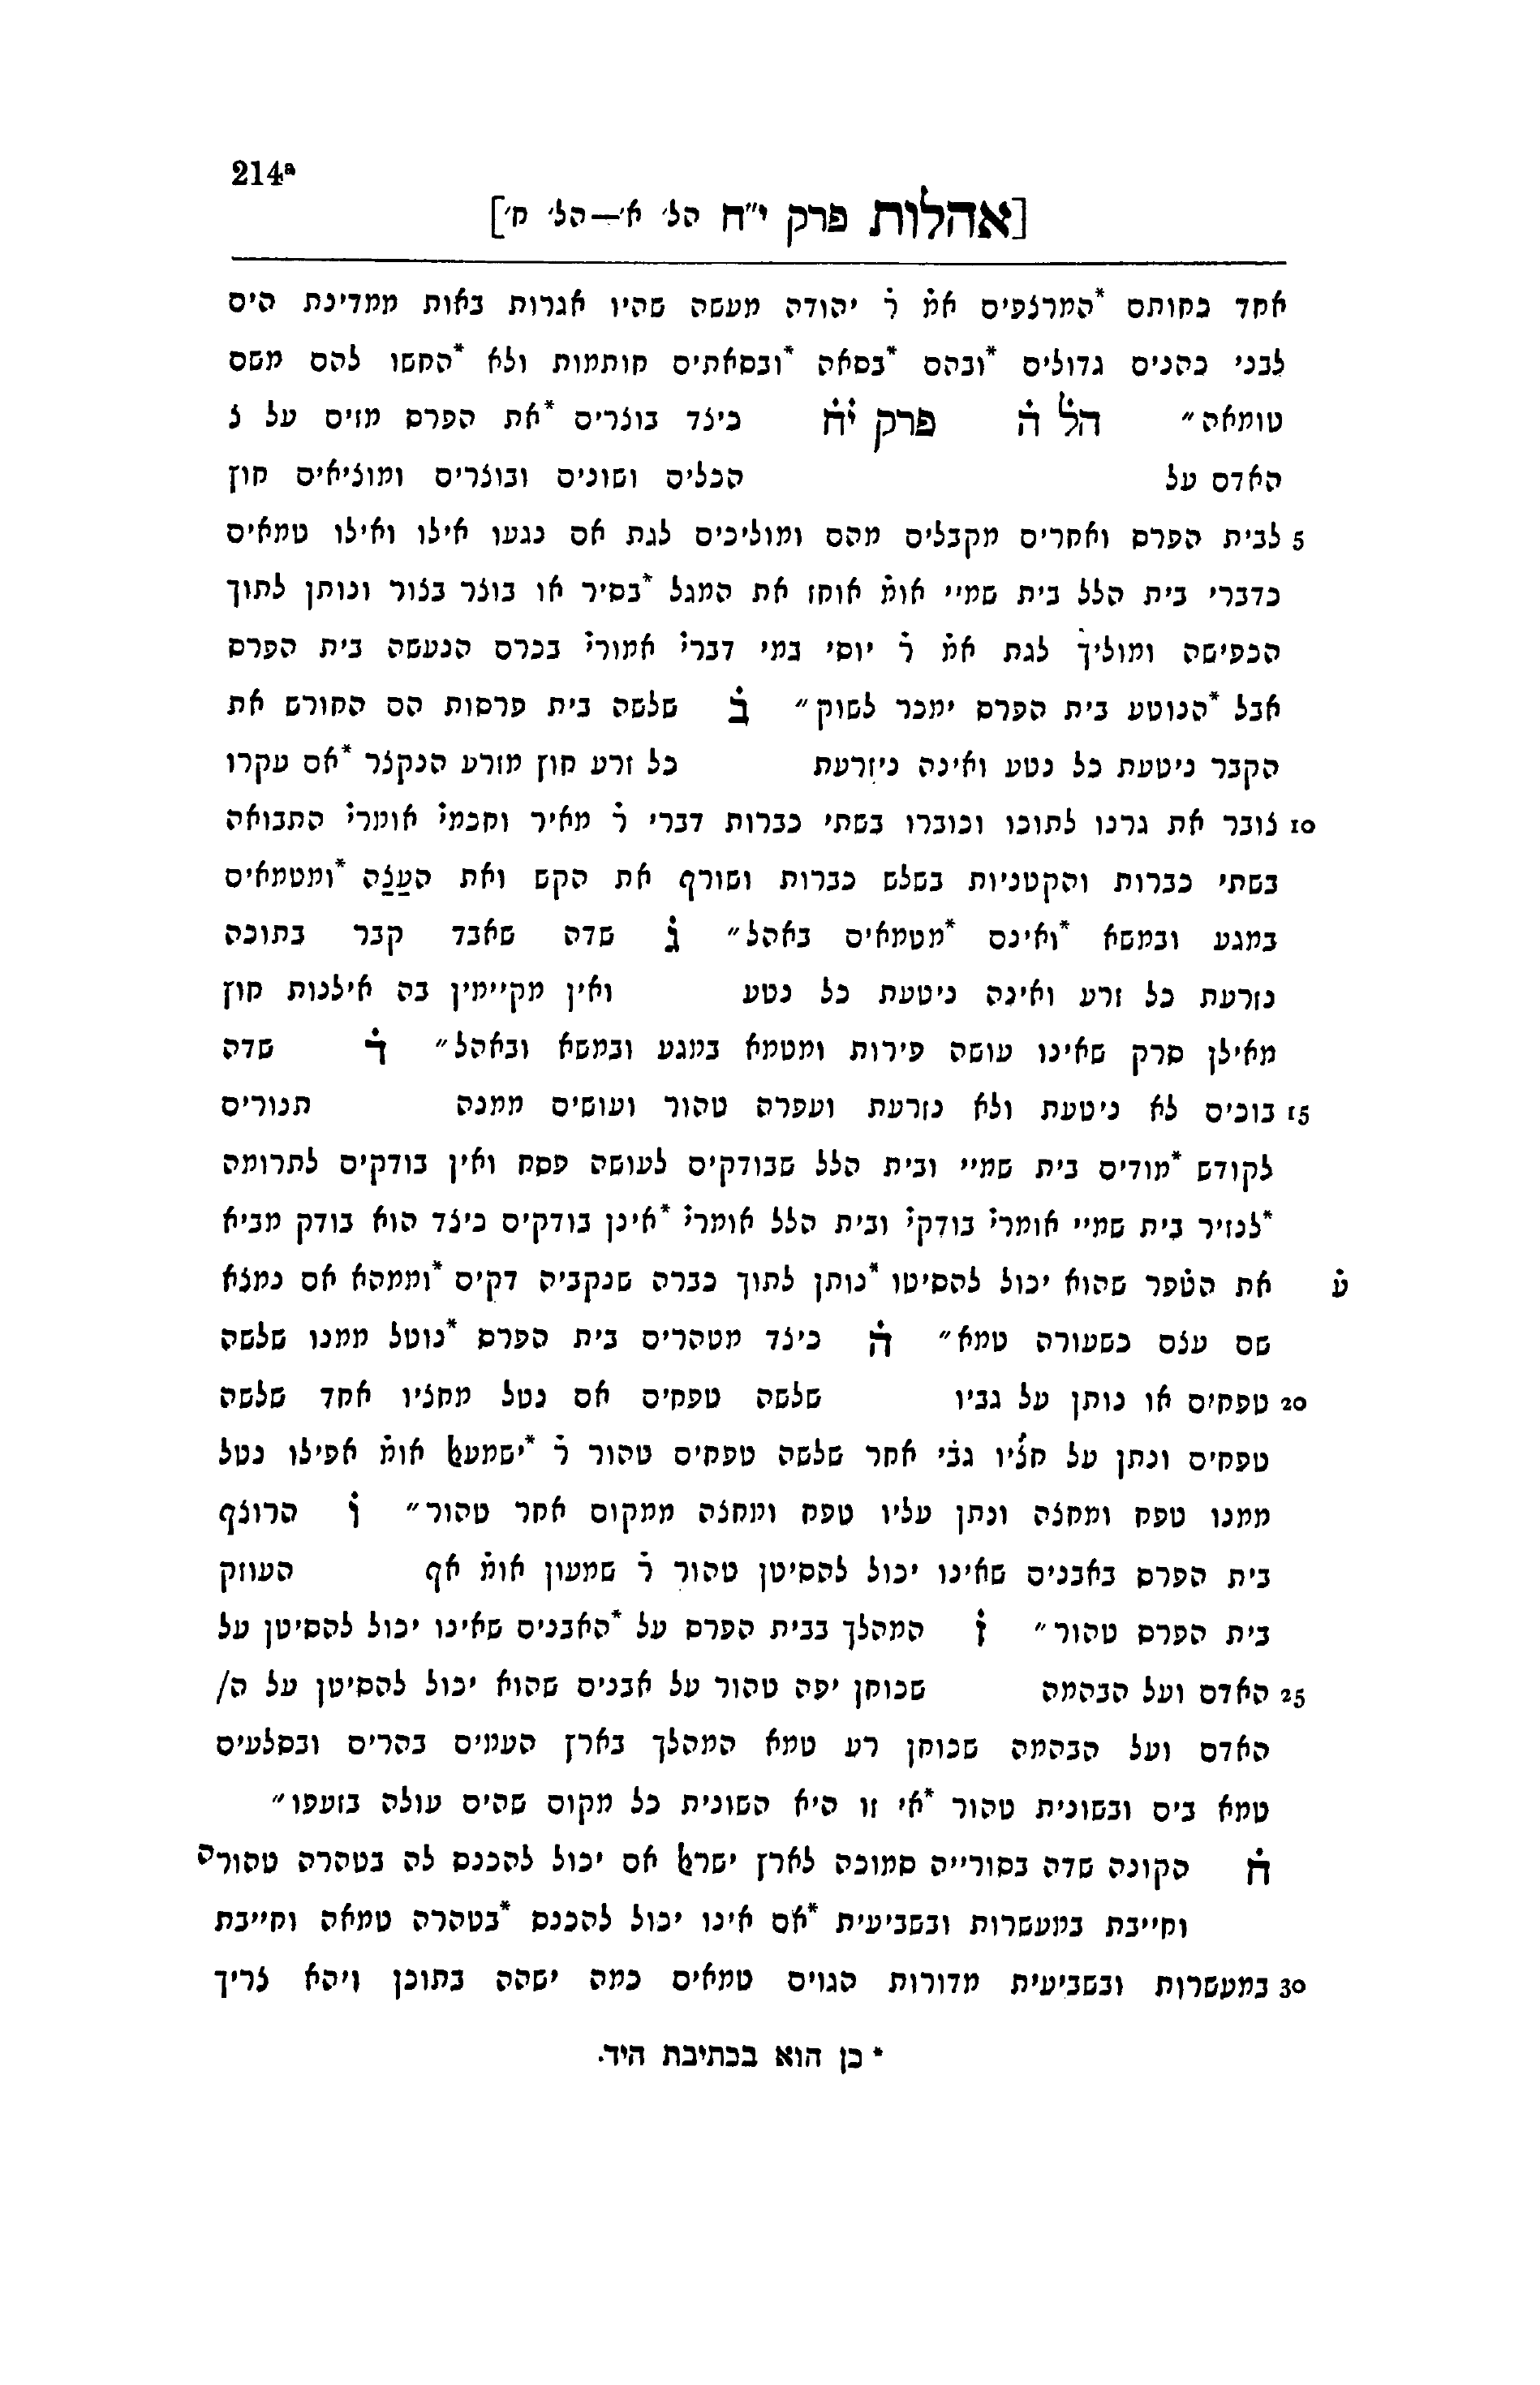 214a
[אהלות פרק י״ח הל׳ א׳—הל׳ ח׳]
אחד כחותם *המרצפים אמ̇ ר̇ יהודה מעשה שהיו אגרות באות ממדינת הים
לבני כהנים גדולים *ובהם *בסאה *ובסאתים חותמות ולא *החשו להם משם
טומאה״ הל̇ ה̇ פרק י̇ח̇ כיצד בוצרים *את הפרס מזים על צ
האדם על הכלים ושונים ובוצרים ומוציאים חוץ
5 לבית הפרס ואחרים מקבלים מהם ומוליכים לגת אם נגעו אילו ואילו טמאים
כדברי בית הלל בית שמיי אומ̇ אוחז את המגל *בסיר או בוצר בצור ונותן לתוך
הכפישה ומוליך לגת אמ̇ ר̇ יוסי במי דברי̇ אמורי̇ בכרם הנעשה בית הפרס
אבל *הנוטע בית הפרס ימכר לשוק״ ב̇ שלשה בית פרסות הם החורש את
הקבר ניטעת כל נטע ואינה ניזרעת כל זרע חוץ מזרע הנקצר *אם עקרו
10 צובר את גרנו לתוכו וכוברו בשתי כברות דברי ר̇ מאיר וחכמי̇ אומרי̇ התבואה
בשתי כברות והקטניות בשלש כברות ושורף את הקש ואת העצה *ומטמאים
במגע ובמשא *ואינם *מטמאים באהל״ ג̇ שדה שאבד קבר בתוכה
נזרעת כל זרע ואינה ניטעת כל נטע ואין מקיימין בה אילנות חוץ
מאילן סרק שאינו עושה פירות ומטמא במגע ובמשא ובאהל״ ד̇ שדה
15 בוכים לא ניטעת ולא נזרעת ועפרה טהור ועושים ממנה תנורים
לקודש *מודים בית שמיי ובית הלל שבודקים לעושה פסח ואין בודקים לתרומה
*לנזיר בית שמיי אומרי̇ בודקי̇ ובית הלל אומרי̇ *אינן בודקים כיצד הוא בודק מביא
את הט̇פר שהוא יכול להסיטו *נותן לתוך כברה שנקביה דקים *וממהא אם נמצא ע̇
שם עצם כשעורה טמא״ ה̇ כיצד מטהרים בית הפרס *נוטל ממנו שלשה
20 טפחים או נותן על גביו שלשה טפחים אם נטל מחציו אחד שלשה
טפחים ונתן על חציו גבי אחר שלשה טפחים טהור ר̇ *ישמעאל אומ̇ אפילו נטל
ממנו טפח ומחצה ונתן עליו טפח ומחצה ממקום אחר טהור״ ו̇ הרוצף
בית הפרס באבנים שאינו יכול להסיטן טהור ר̇ שמעון אומ̇ אף העוזק
בית הפרס טהור״ ז̇ המהלך בבית הפרס על *האבנים שאינו יכול להסיטן על
25 האדם ועל הבהמה שכוחן יפה טהור על אבנים שהוא יכול להסיטן על ה/
האדם ועל הבהמה שכוחן רע טמא המהלך בארץ העמים בהרים ובסלעים
טמא בים ובשונית טהור *אי זו היא השונית כל מקום שהים עולה בזעפו״
ח̇ הקונה שדה בסורייה סמוכה לארץ ישראל אם יכול להכנס לה בטהרה טהורה
וחייבת במעשרות ובשביעית *אם אינו יכול להכנס *בטהרה טמאה וחייבת
30 במעשרות ובשביעית מדורות הגוים טמאים כמה ישהה בתוכן ויהא צריך
* כן הוא בכתיבת היד.